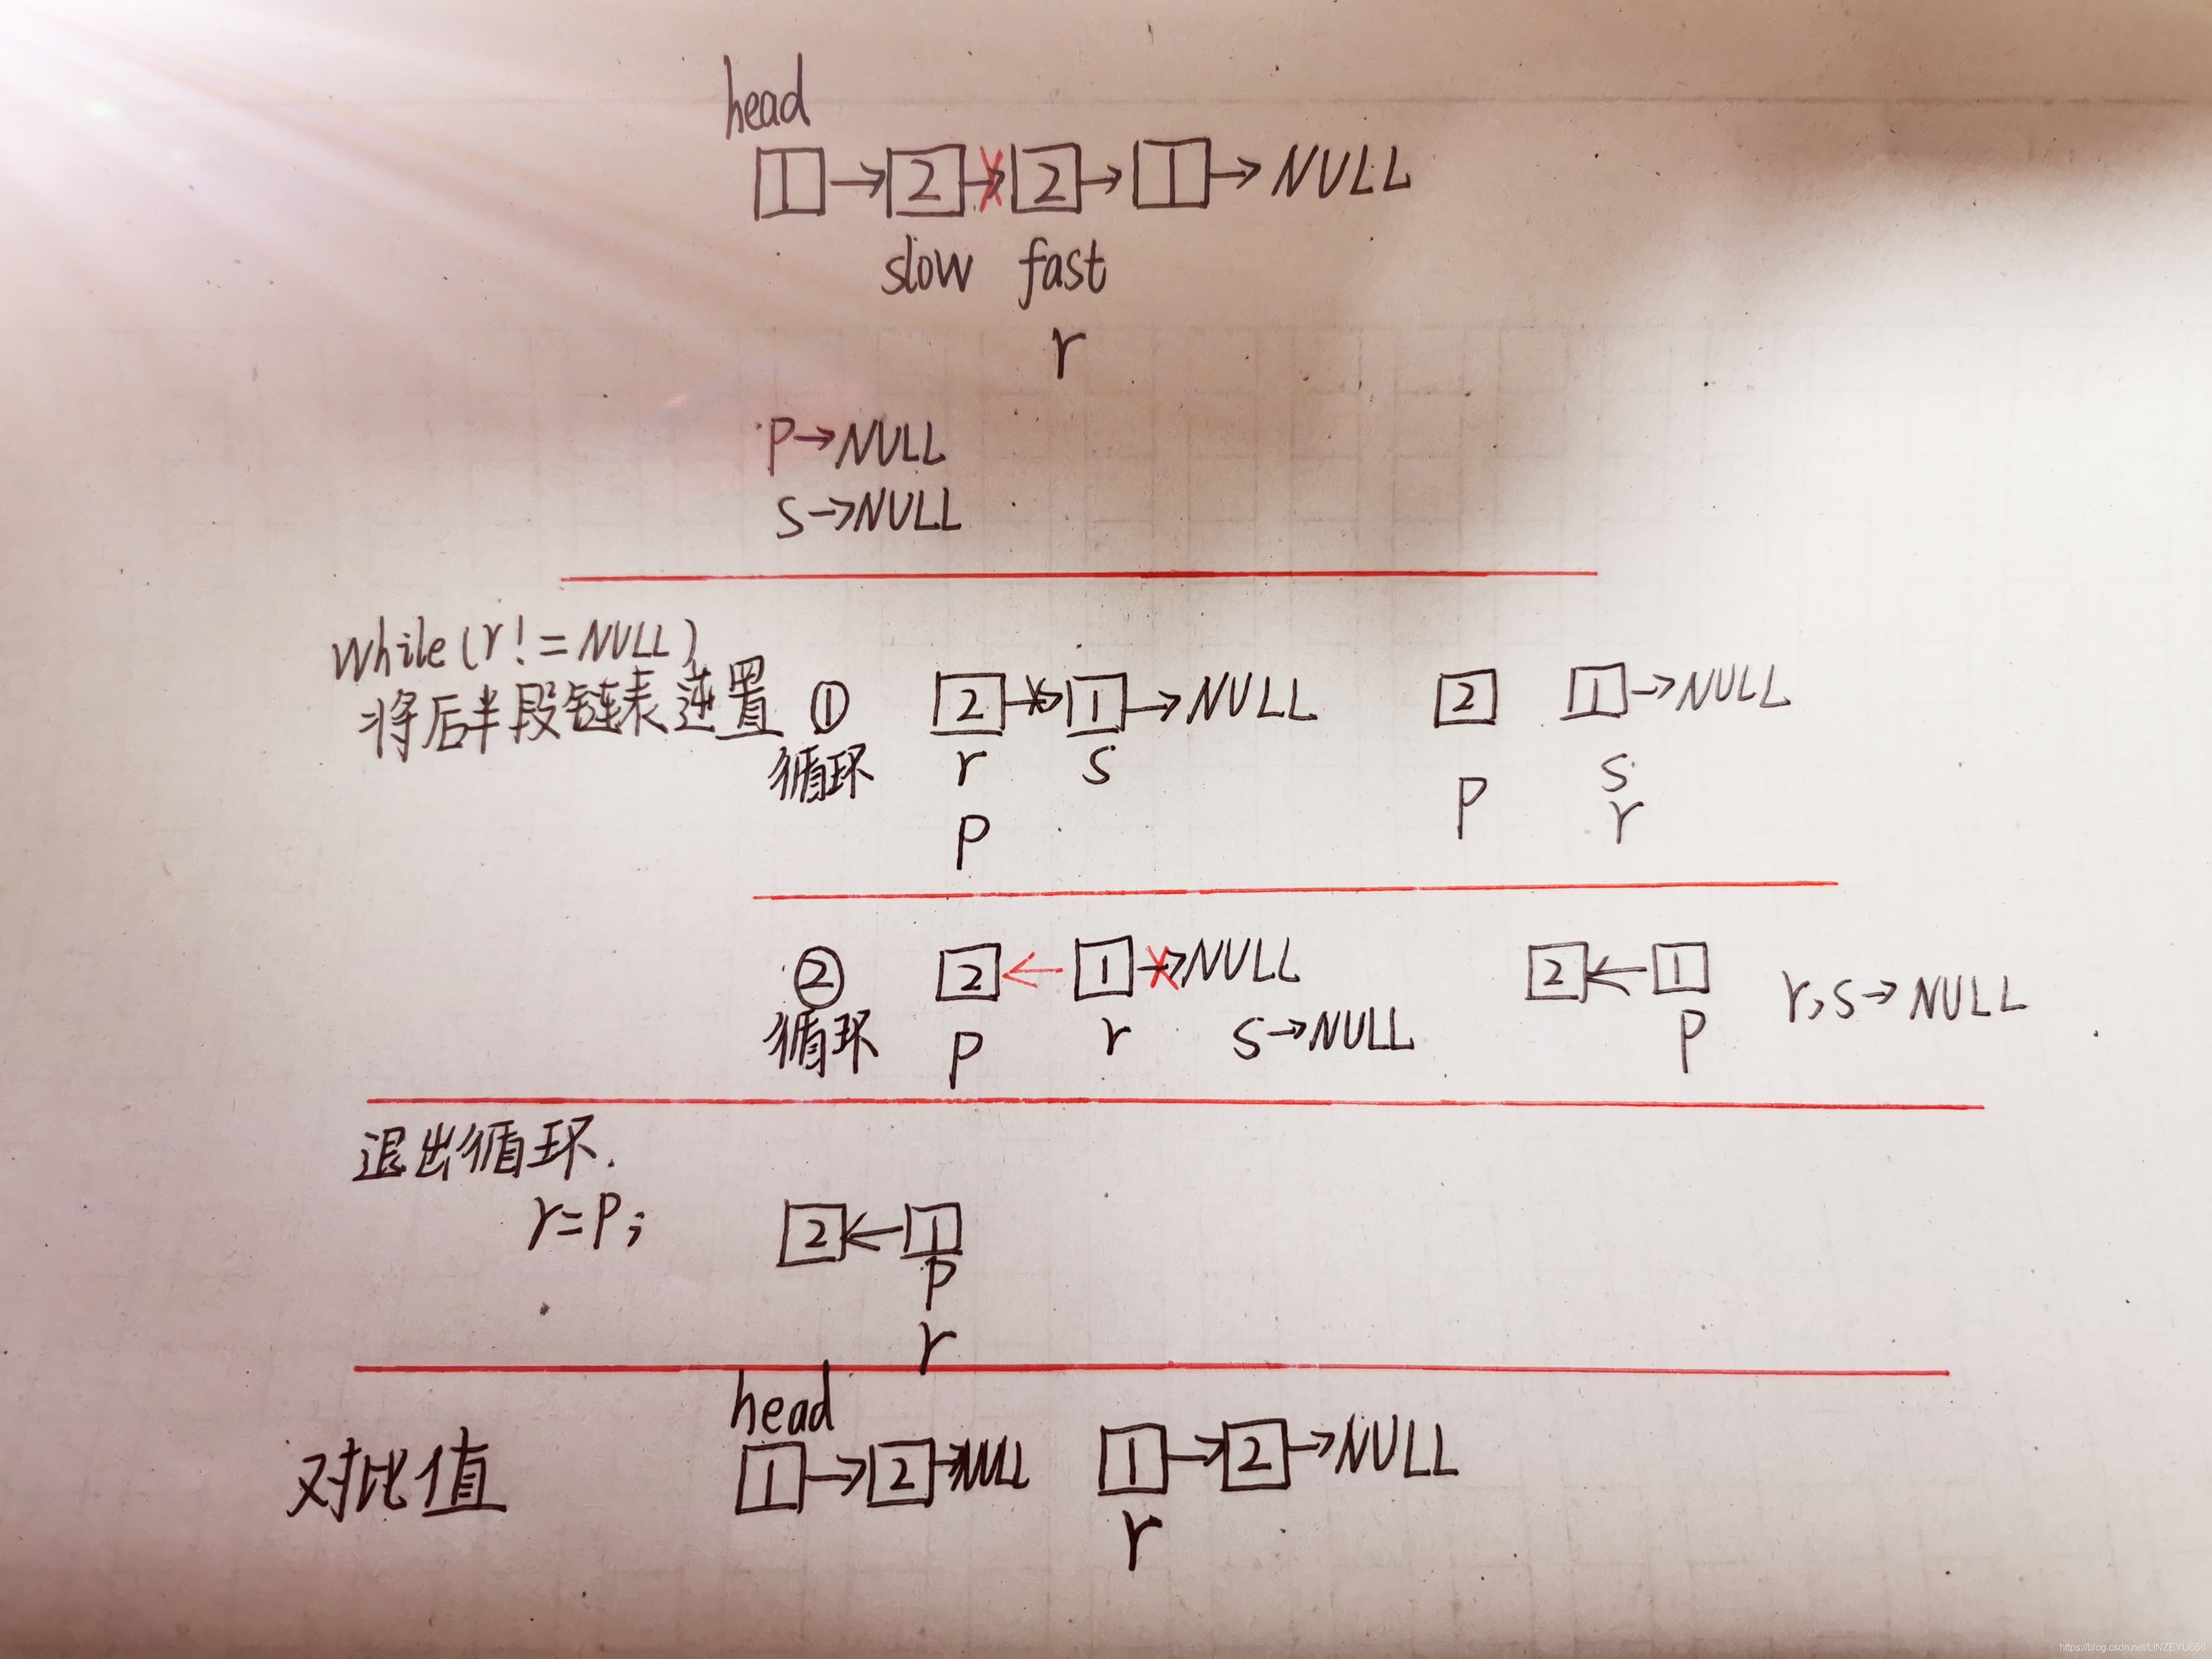 head
1 → 2 → 2 → 1 → NULL
slow fast
r
P → NULL
S → NULL
While(r!=NULL)
将后半段链表逆置 ① 2 → 1 → NULL 2 1 → NULL
循环 r S S
P P r
② 2 ← 1 → NULL 2 ← 1 r,s → NULL
循环 P r S → NULL P
退出循环.
r=P; 2 ← 1
P
r
head
对比值 1 → 2 → NULL 1 → 2 → NULL
r
https://blog.csdn.net/LINZEYU666